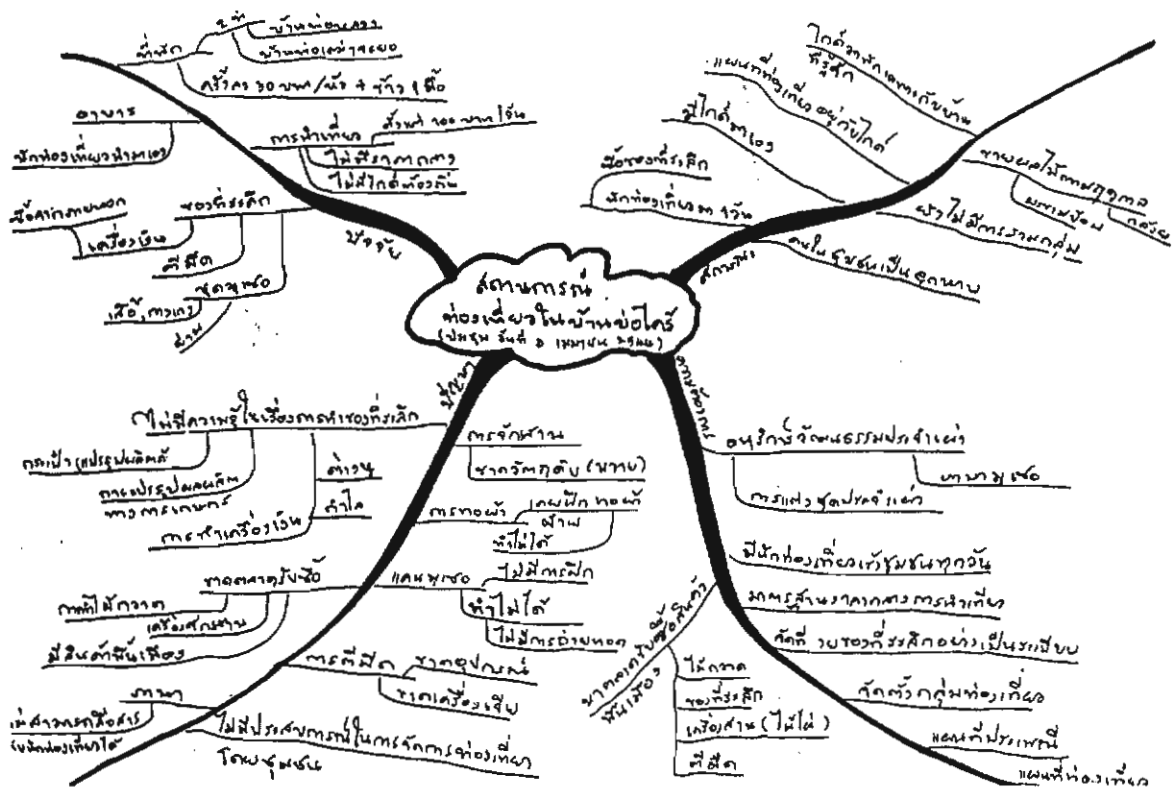 สถานการณ์
ท่องเที่ยวในบ้านบ่อไคร้
ปัจจัย
ที่พัก
2 ที่
อาหาร
นักท่องเที่ยวนำมาเอง
การนำเที่ยว
ไม่มีราคากลาง
ไม่มีไกด์ท้องถิ่น
ของที่ระลึก
ซื้อจากภายนอก
เครื่องเงิน
ตีมีด
ชุดมูเซอ
เสื้อ, กางเกง
ย่าม
ไกด์จะพักเฉพาะกับบ้าน
ที่รู้จัก
แผนที่ท่องเที่ยวอยู่กับไกด์
มีไกด์มาเอง
ซื้อของที่ระลึก
นักท่องเที่ยวมา 1 วัน
ขายผลไม้ตามฤดูกาล
มะขามป้อม
กล้วย
ยังไม่มีการรวมกลุ่ม
คนในชุมชนเป็นลูกหาบ
ปัญหา
ไม่มีความรู้ในเรื่องการทำของที่ระลึก
กระเป๋า แปรรูปผลิตภัณฑ์
การแปรรูปผลผลิต
ทางการเกษตร
การทำเครื่องเงิน
ต่างหู
กำไล
การจักสาน
ขาดวัตถุดิบ (หวาย)
การทอผ้า
เคยฝึกทอผ้า
ย่าม
ทำไม่ได้
แคนมูเซอ
ไม่มีการฝึก
ทำไม่ได้
ไม่มีการถ่ายทอด
ขาดตลาดรับซื้อ
การทำไม้กวาด
เครื่องจักสาน
มีสินค้าพื้นเมือง
การตีมีด
ขาดอุปกรณ์
ขาดเครื่องเจีย
ภาษา
ไม่สามารถสื่อสาร
กับนักท่องเที่ยวได้
ไม่มีประสบการณ์ในการจัดการท่องเที่ยว
โดยชุมชน
ความต้องการ
อนุรักษ์วัฒนธรรมประจำเผ่า
ภาษามูเซอ
การแต่งชุดประจำเผ่า
มีนักท่องเที่ยวเข้าชุมชนทุกวัน
มาตรฐานราคากลางการนำเที่ยว
จัดที่ขายของที่ระลึกอย่างเป็นระเบียบ
จัดตั้งกลุ่มท่องเที่ยว
แผนที่ประเพณี
แผนที่ท่องเที่ยว
หาตลาดรับซื้อสินค้า
พื้นเมือง
ไม้กวาด
ของที่ระลึก
เครื่องสาน (ไม้ไผ่)
ตีมีด